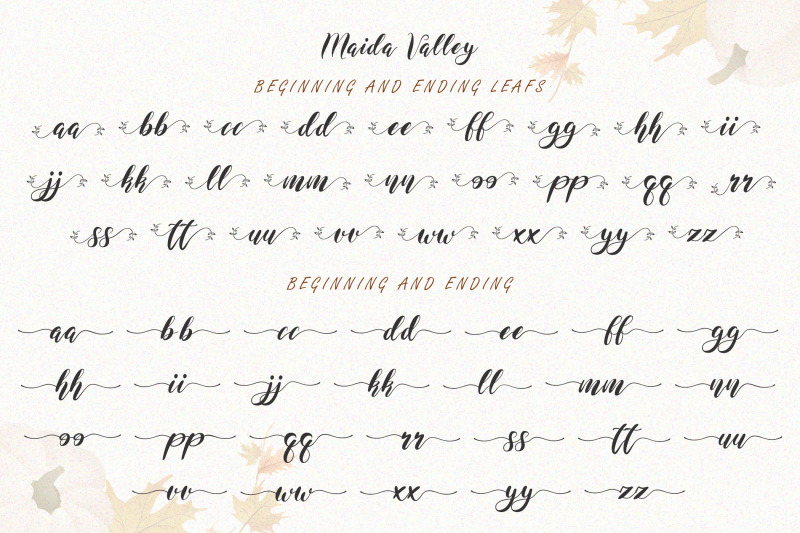 Maida Valley
BEGINNING AND ENDING LEAFS
aa bb cc dd ee ff gg hh ii
jj kk ll mm nn oo pp qq rr
ss tt uu vv ww xx yy zz
BEGINNING AND ENDING
aa bb cc dd ee ff gg
hh ii jj kk ll mm nn
oo pp qq rr ss tt uu
vv ww xx yy zz